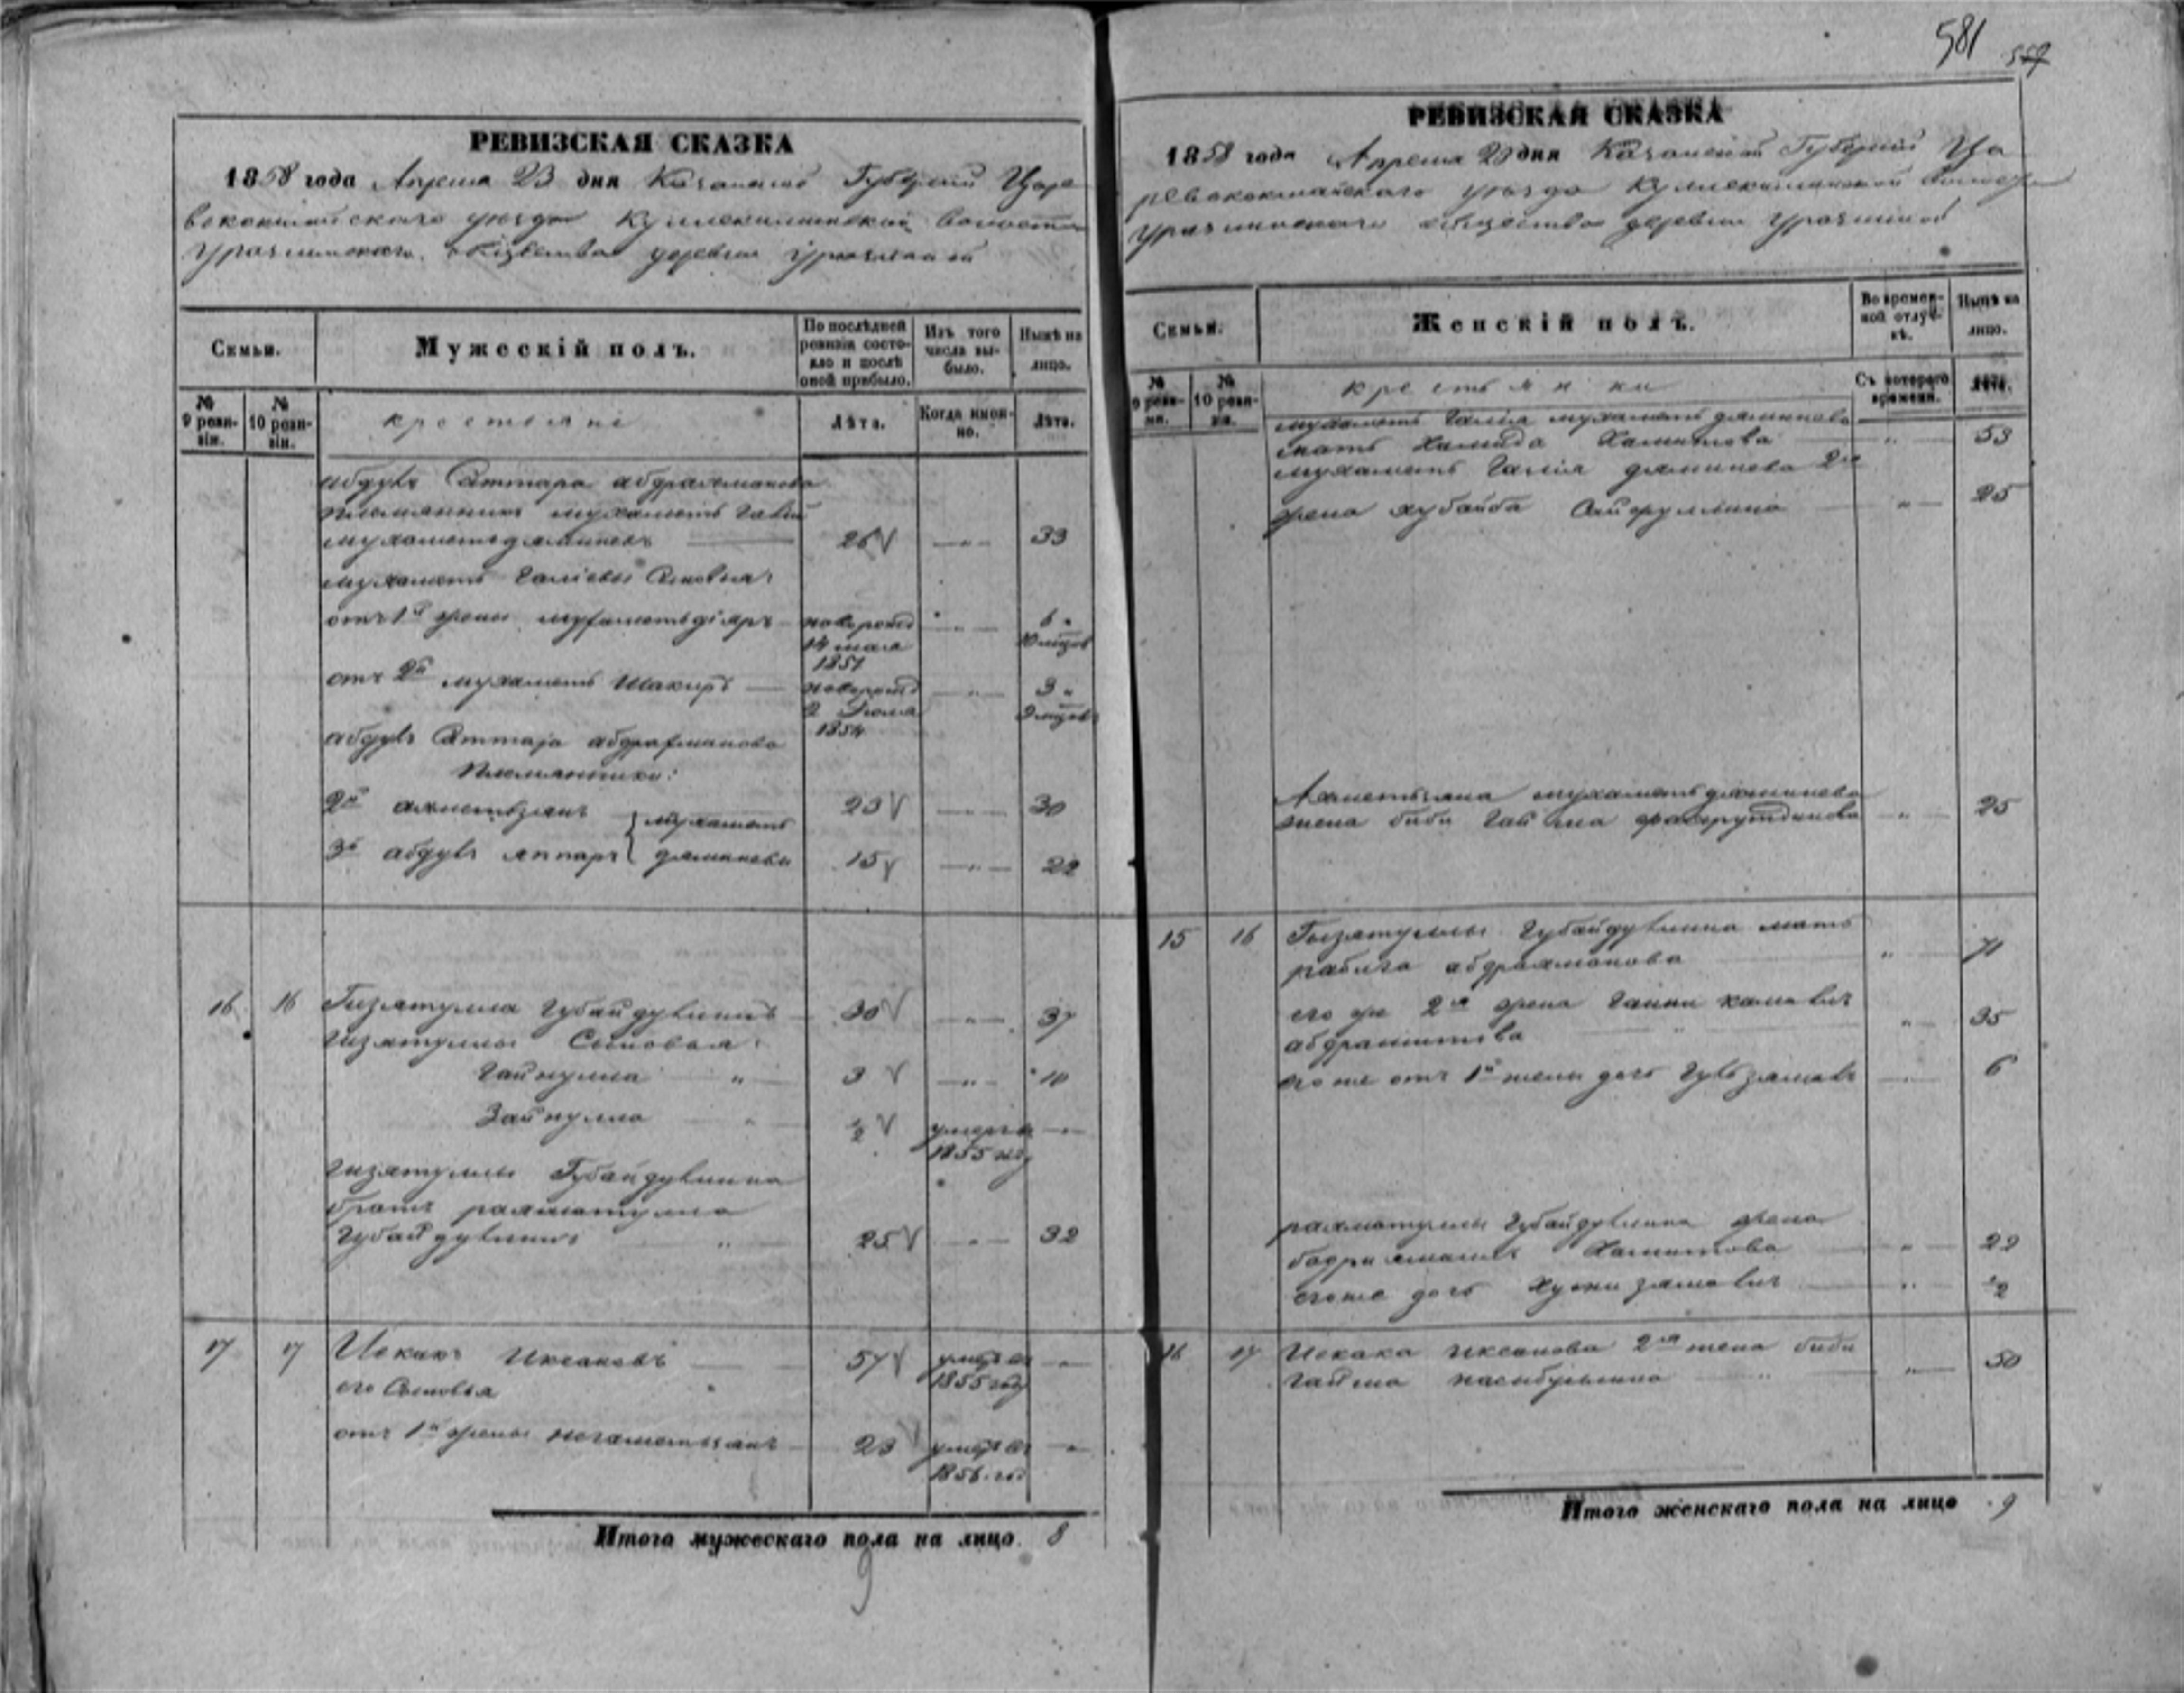 581
РЕВИЗСКАЯ СКАЗКА
1858 года Апреля 23 дня Казанской Губернии Царе
вококшайскаго уезда Кулле­киминской волости
Уразлинскаго общества деревни Уразлиной
Семьи.
Мужескій полъ.
По послѣдней ревизіи состояло и послѣ оной прибыло.
Изъ того числа выбыло.
Нынѣ на лицо.
№ 9 ревизіи.
№ 10 ревизіи.
крестьяне
Лѣта.
Когда именно.
Лѣта.
абдулъ Саттара абдрахманова
племянникъ мухаметъ Галей
мухаметъдяминевъ 26 " 33
мухаметъ Галіевы Сыновья
отъ 1й жены мухаметьдіяръ новорожд 14 мая 1851 " 6 " 10 месцов
отъ 2й мухаметъ Шакиръ новорожд 2 Июля 1854 " 3 " 9 месцов
абдулъ Саттара абдрахманова
племянники:
2й ахметьзянъ } мухаметь 23 " 30
3й абдулъ яппаръ } дяминевы 15 " 22
16 16 Гизятулла Губайдуллинъ 30 " 37
Гизятуллы Сыновья:
Гайнулла " 3 " 10
Зайнулла " 1/2 умеръ въ 1855 году "
Гизятуллы Губайдуллина
братъ рахматулла
Губайдуллинъ " 25 " 32
17 17 Исхакъ Иксановъ 57 умеръ въ 1855 году "
его Сыновья
отъ 1й жены негаметьзянъ 23 умеръ въ 1856 год "
Итого мужескаго пола на лицо 8
9
РЕВИЗСКАЯ СКАЗКА
1858 года Апреля 23 дня Казанской Губернии Ца
ревококшайскаго уезда Куллекиминской волости
Уразлинскаго общества деревни Уразлиной
Семьи.
Женскій полъ.
Во временной отлучкѣ.
Нынѣ на лицо.
№ 9 ревизіи.
№ 10 ревизіи.
крестьянки
Съ котораго времени.
Лѣта.
мухаметъ Галея мухаметьдяминева
мать Хамида Хамитова " 53
мухаметъ Галея дяминева 2я
жена хубайба Сайфуллина " 25
Ахметьзяна мухаметьдяминева
жена биби Гайша фахрутдинова " 25
15 16 Гизятуллы Губайдуллина мать
рабига абдрахманова " 71
его же 2я жена Гайни камалъ
абдрашитова " 35
его же отъ 1й жены дочь Гульзямалъ 6
рахматуллы Губайдуллина жена
бадриямалъ Хамитова " 22
его же дочь Хусни зямалъ " 1/2
16 17 Исхака Иксанова 2я жена биби
Гайша насибуллина " 50
Итого женскаго пола на лицо 9